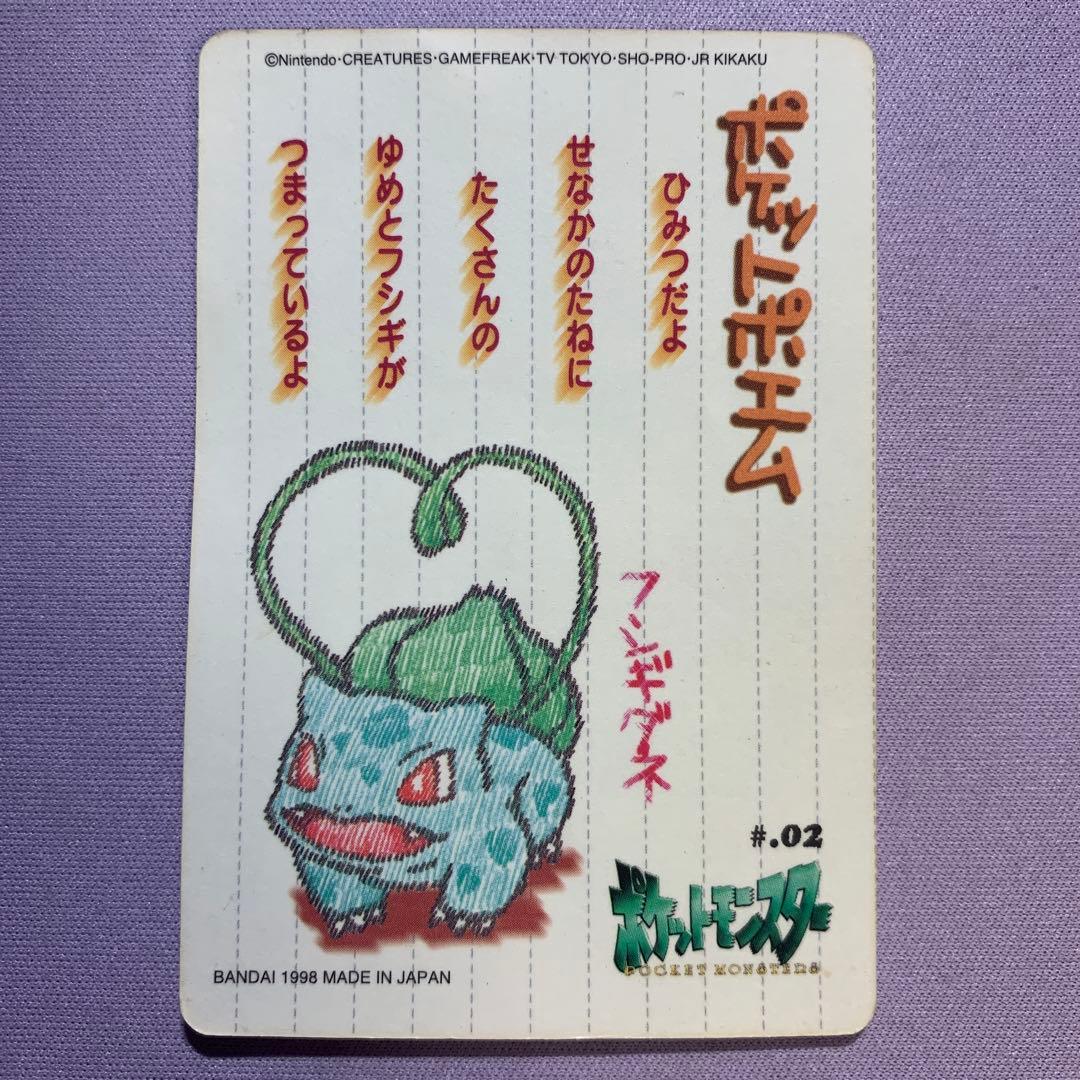 ©Nintendo・CREATURES・GAMEFREAK・TV TOKYO・SHO-PRO・JR KIKAKU
ポケットポエム
ひみつだよ
せなかのたねに
たくさんの
ゆめとフシギが
つまっているよ
フシギダネ
#.02
ポケットモンスター
POCKET MONSTERS
BANDAI 1998 MADE IN JAPAN